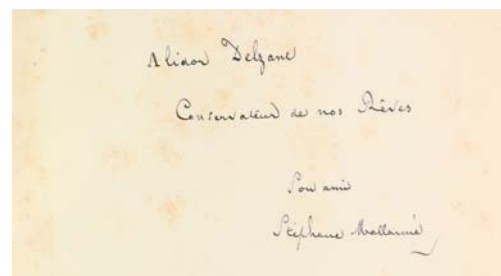 Alidor Delzant
Conservateur de nos Rêves
Son ami
Stéphane Mallarmé